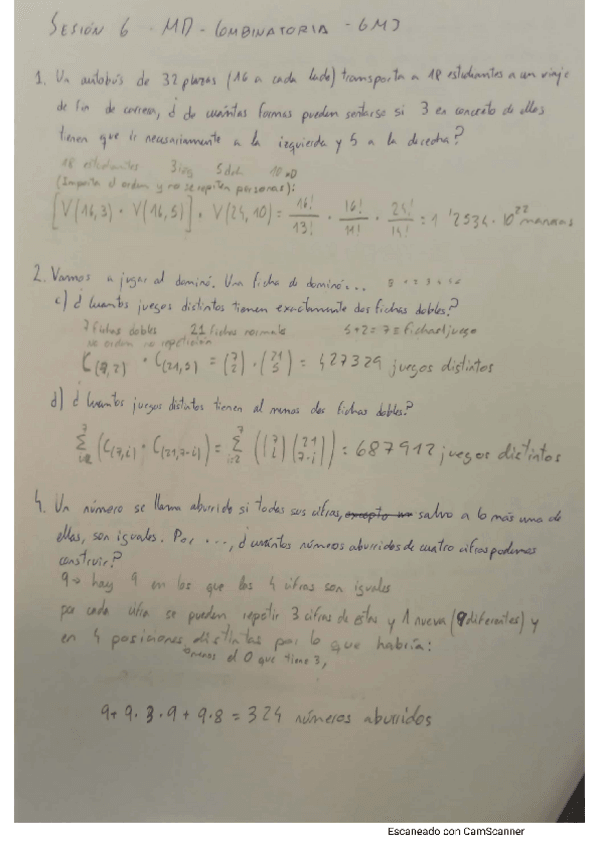 SESIÓN 6 - MD - COMBINATORIA - GM3
1. Un autobús de 32 plazas (16 a cada lado) transporta a 18 estudiantes a un viaje
de fin de carrera, ¿de cuántas formas pueden sentarse si 3 en concreto de ellos
tienen que ir necesariamente a la izquierda y 5 a la derecha?
18 estudiantes 3 izq 5 dch 10 
(Importa el orden y no se repiten personas):
[V(16,3) · V(16,5)] · V(24,10) = 16!/13! · 16!/11! · 24!/14! = 1'2534 · 10^22 maneras
2. Vamos a jugar al dominó. Una ficha de dominó... 0 1 2 3 4 5 6
c) ¿Cuantos juegos distintos tienen exactamente dos fichas dobles?
7 fichas dobles 21 fichas normales 5+2=7=fichas/juego
no orden no repetición
C(7,2) · C(21,5) = (7 2) · (21 5) = 427329 juegos distintos
d) ¿Cuantos juegos distintos tienen al menos dos fichas dobles?
7∑i=2 (C(7,i) · C(21,7-i)) = 7∑i=2 ((7 i)(21 7-i)) = 687912 juegos distintos
4. Un número se llama aburrido si todas sus cifras, excepto un salvo a lo más una de
ellas, son iguales. Por ..., ¿cuántos números aburridos de cuatro cifras podemos
construir?
9 → hay 9 en los que las 4 cifras son iguales
por cada cifra se pueden repetir 3 cifras de estas y 1 nueva (9 diferentes) y
en 4 posiciones distintas por lo que habría:
menos el 0 que tiene 3,
9+ 9·3·9 + 9·8 = 324 números aburridos
Escaneado con CamScanner